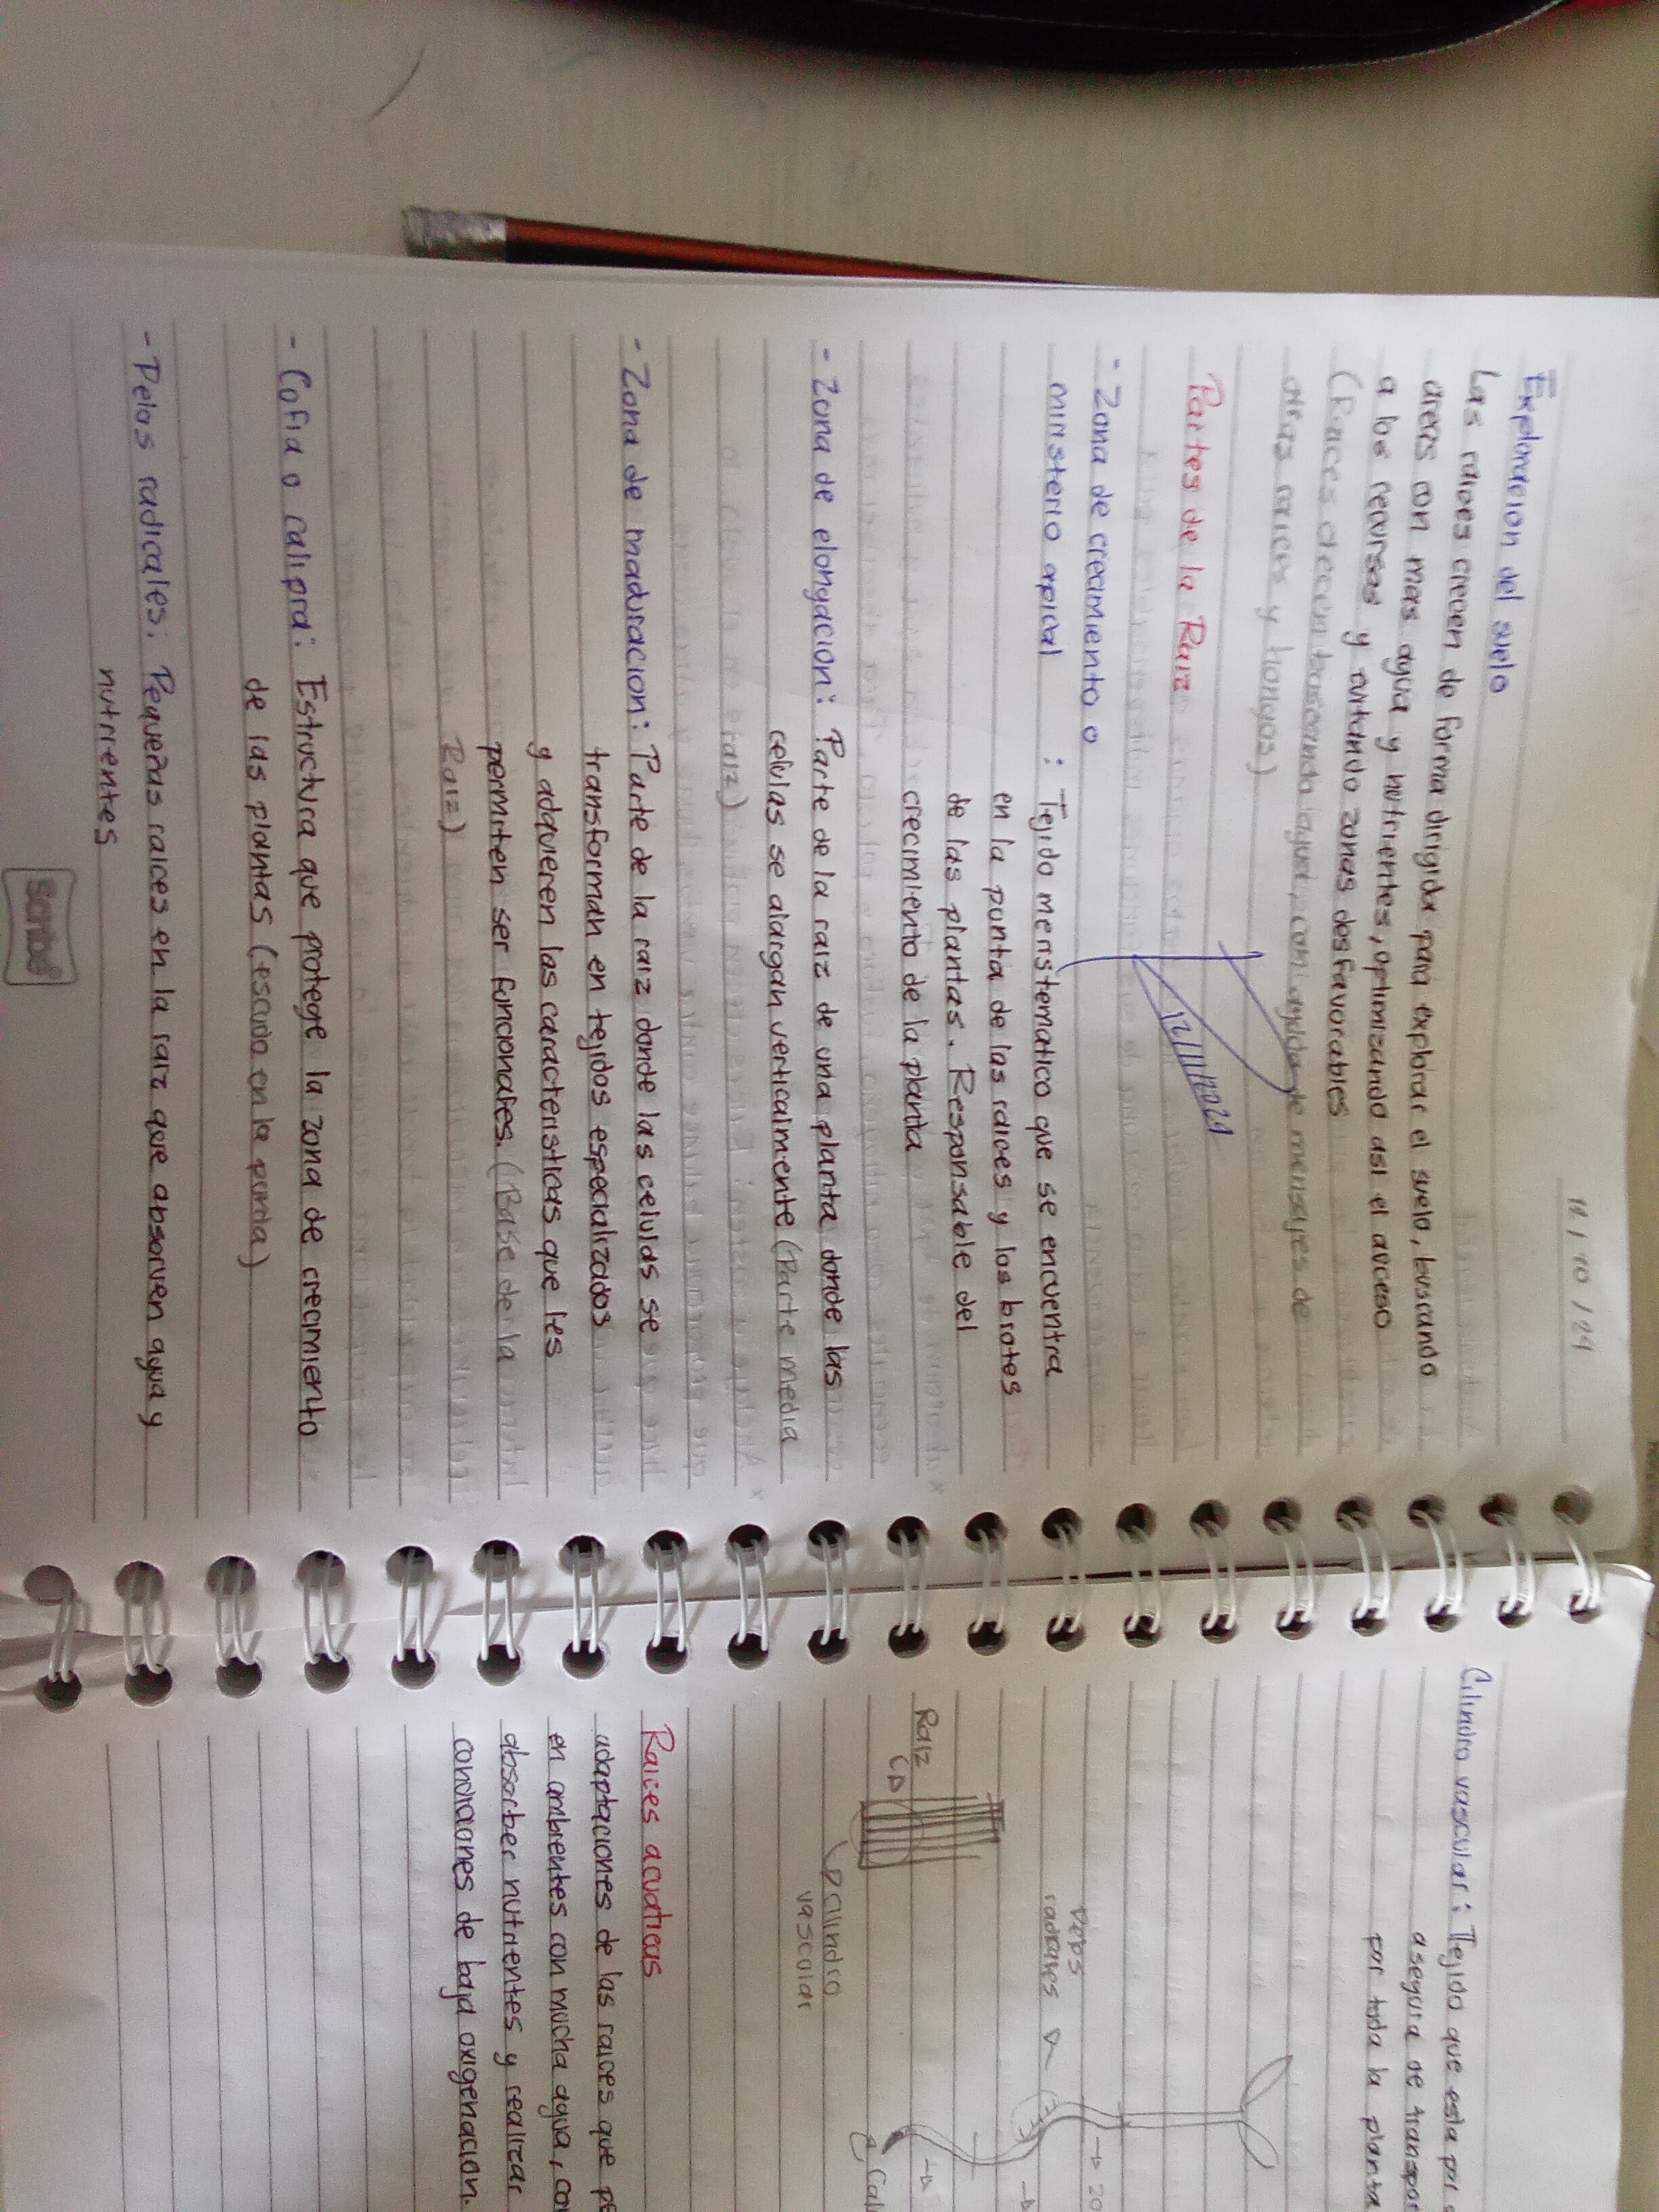 11 / 10 / 24
Exploracion del suelo
Las raices crecen de forma dirigida para explorar el suelo, buscando
areas con mas agua y nutrientes, optimizando asi el acceso
a los recursos y evitando zonas desfavorables
(Raices crecen buscando agua, con ayuda de mensajes de
otras raices y hongos)
Partes de la Raiz
- Zona de creamiento o
miristerio apical : Tejido meristematico que se encuentra
en la punta de las raices y los brotes
de las plantas. Responsable del
crecimiento de la planta
- Zona de elongacion: Parte de la raiz de una planta donde las
celulas se alargan verticalmente (Parte media
raiz)
- Zona de maduracion: Parte de la raiz donde las celulas se
transforman en tejidos especializados
y adquieren las caracteristicas que les
permiten ser funcionales. (Base de la
Raiz)
- Cofia o calipra: Estructura que protege la zona de crecimiento
de las plantas (escudo en la punta)
- Pelos radicales: Pequeñas raices en la raiz que absorven agua y
nutrientes
scribe
Cilindro vascular: Tejido que esta por
asegura de transpor
por toda la planta
Pelos
radicales
Raiz
cilindro
vascular
Raices acuaticas
adaptaciones de las raices que pe
en ambientes con mucha agua, co
absorber nutrientes y realizar
condiciones de baja oxigenacion.